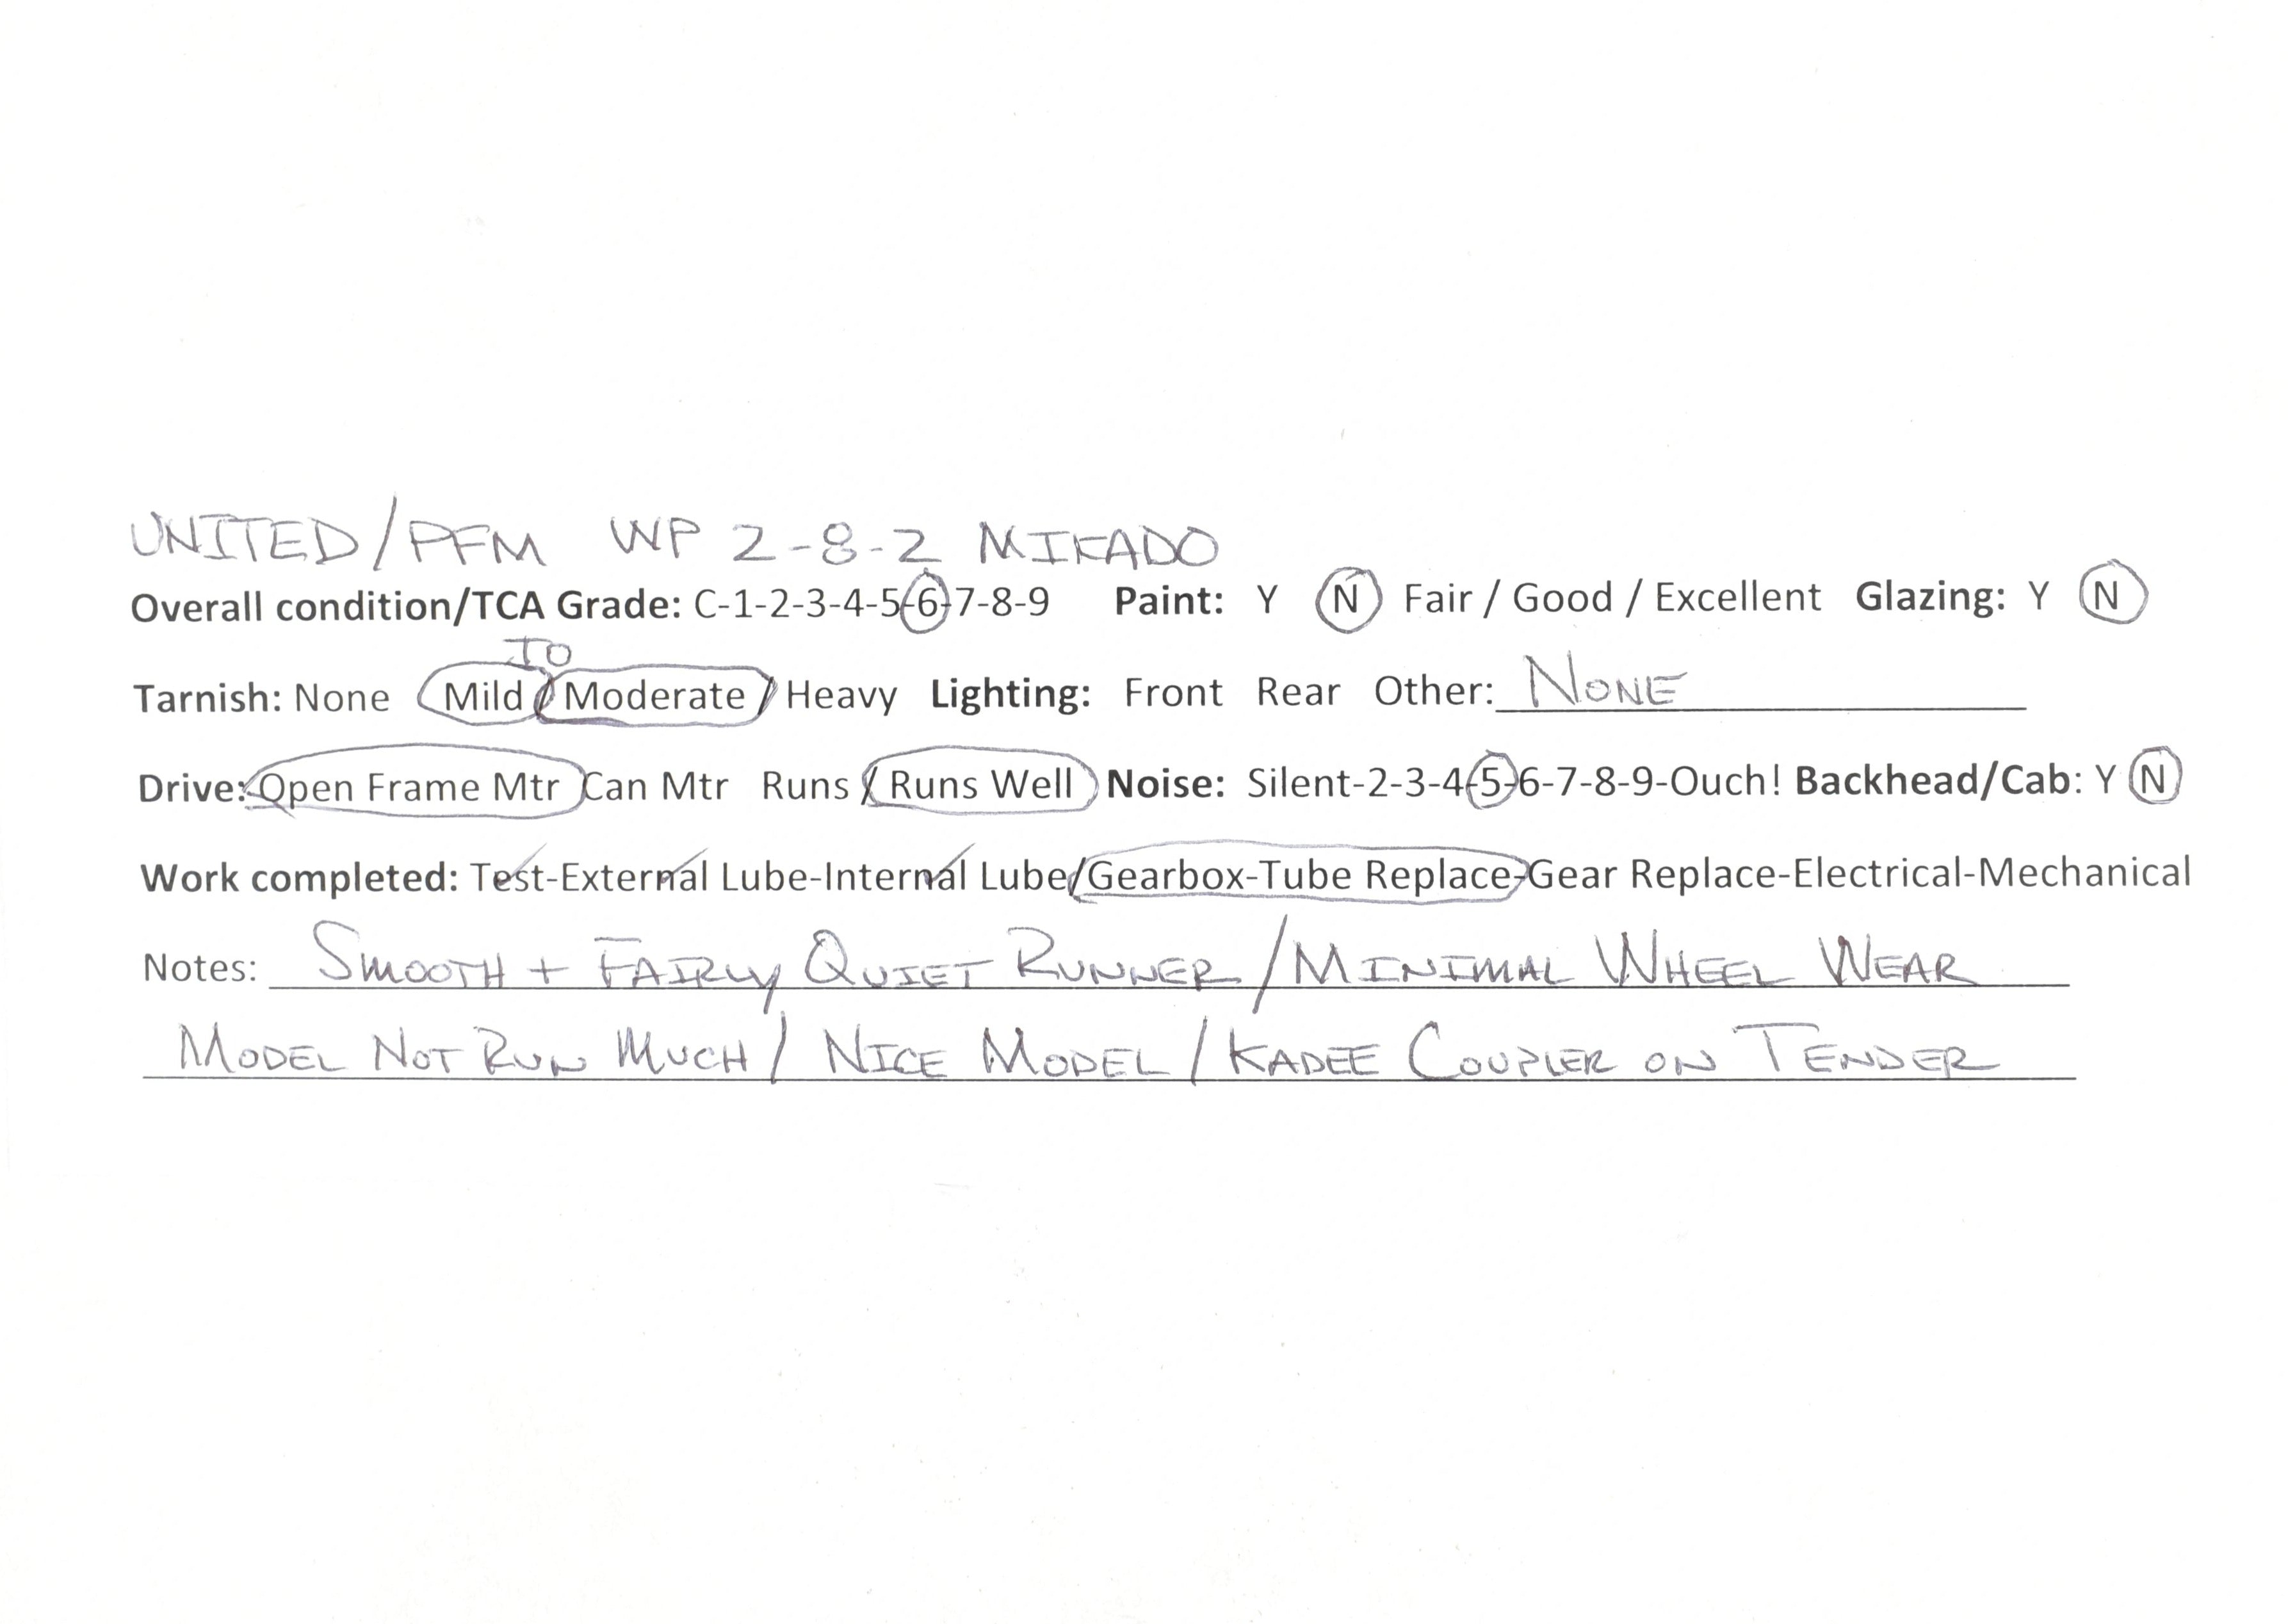 UNITED/PFM WP 2-8-2 MIKADO
Overall condition/TCA Grade: C-1-2-3-4-5-6-7-8-9 Paint: Y N Fair / Good / Excellent Glazing: Y N
TO
Tarnish: None Mild / Moderate / Heavy Lighting: Front Rear Other: NONE
Drive: Open Frame Mtr Can Mtr Runs / Runs Well Noise: Silent-2-3-4-5-6-7-8-9-Ouch! Backhead/Cab: Y N
Work completed: Test-External Lube-Internal Lube/Gearbox-Tube Replace-Gear Replace-Electrical-Mechanical
Notes: SMOOTH + FAIRLY QUIET RUNNER/MINIMAL WHEEL WEAR
MODEL NOT RUN MUCH/ NICE MODEL/KADEE COUPLER ON TENDER